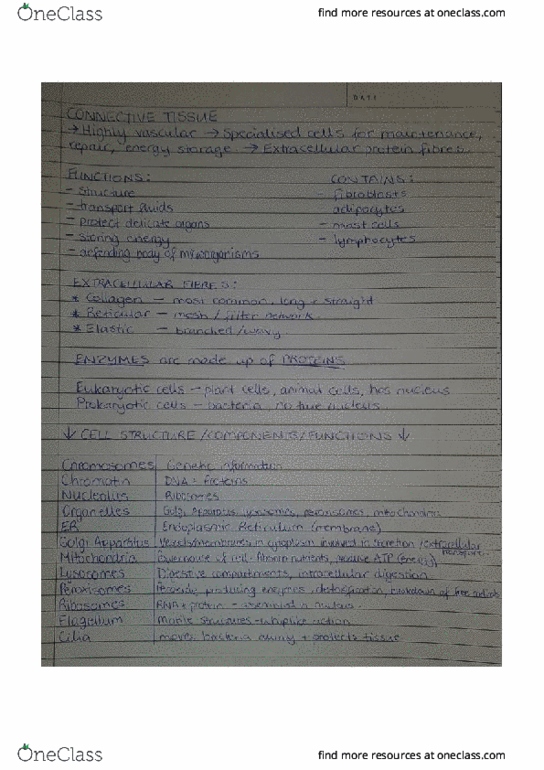 OneClass
find more resources at oneclass.com
DATE
CONNECTIVE TISSUE
→ Highly vascular → Specialised cells for maintenance,
repair, energy storage → Extracellular protein fibres.
FUNCTIONS:
- Structure
- transport fluids
- protect delicate organs
- storing energy
- defending body of
CONTAINS:
fibroblasts
adipocytes
- mast cells
- lymphocytes
EXTRACELLULAR FIBRES:
* Collagen - most common, long + straight
* Reticular - mesh / filter network.
* Elastic - branched / wavy
ENZYMES are made up of PROTEINS
Eukaryotic cells - plant cells, animal cells, has nucleus
Prokaryotic cells - bacteria, no true nucleus
↓ CELL STRUCTURE / COMPONENTS / FUNCTIONS ↓
Chromosomes Genetic information
Chromatin DNA +
Nucleolus Ribosomes
Organelles Golgi apparatus, lysosomes, peroxisomes, mitochondria
ER Endoplasmic Reticulum (membrane)
Golgi Apparatus in cytoplasm involved in secretion / extracellular
transport
Mitochondria of cell nutrients, ATP (energy)
Lysosomes Digestive compartments, intracellular digestion
Peroxisomes producing enzymes, detoxification, breakdown of free radicals
Ribosomes RNA + protein - assembled in nucleus
Flagellum structures - action
Cilia moves bacteria away + protects tissue
OneClass
find more resources at oneclass.com